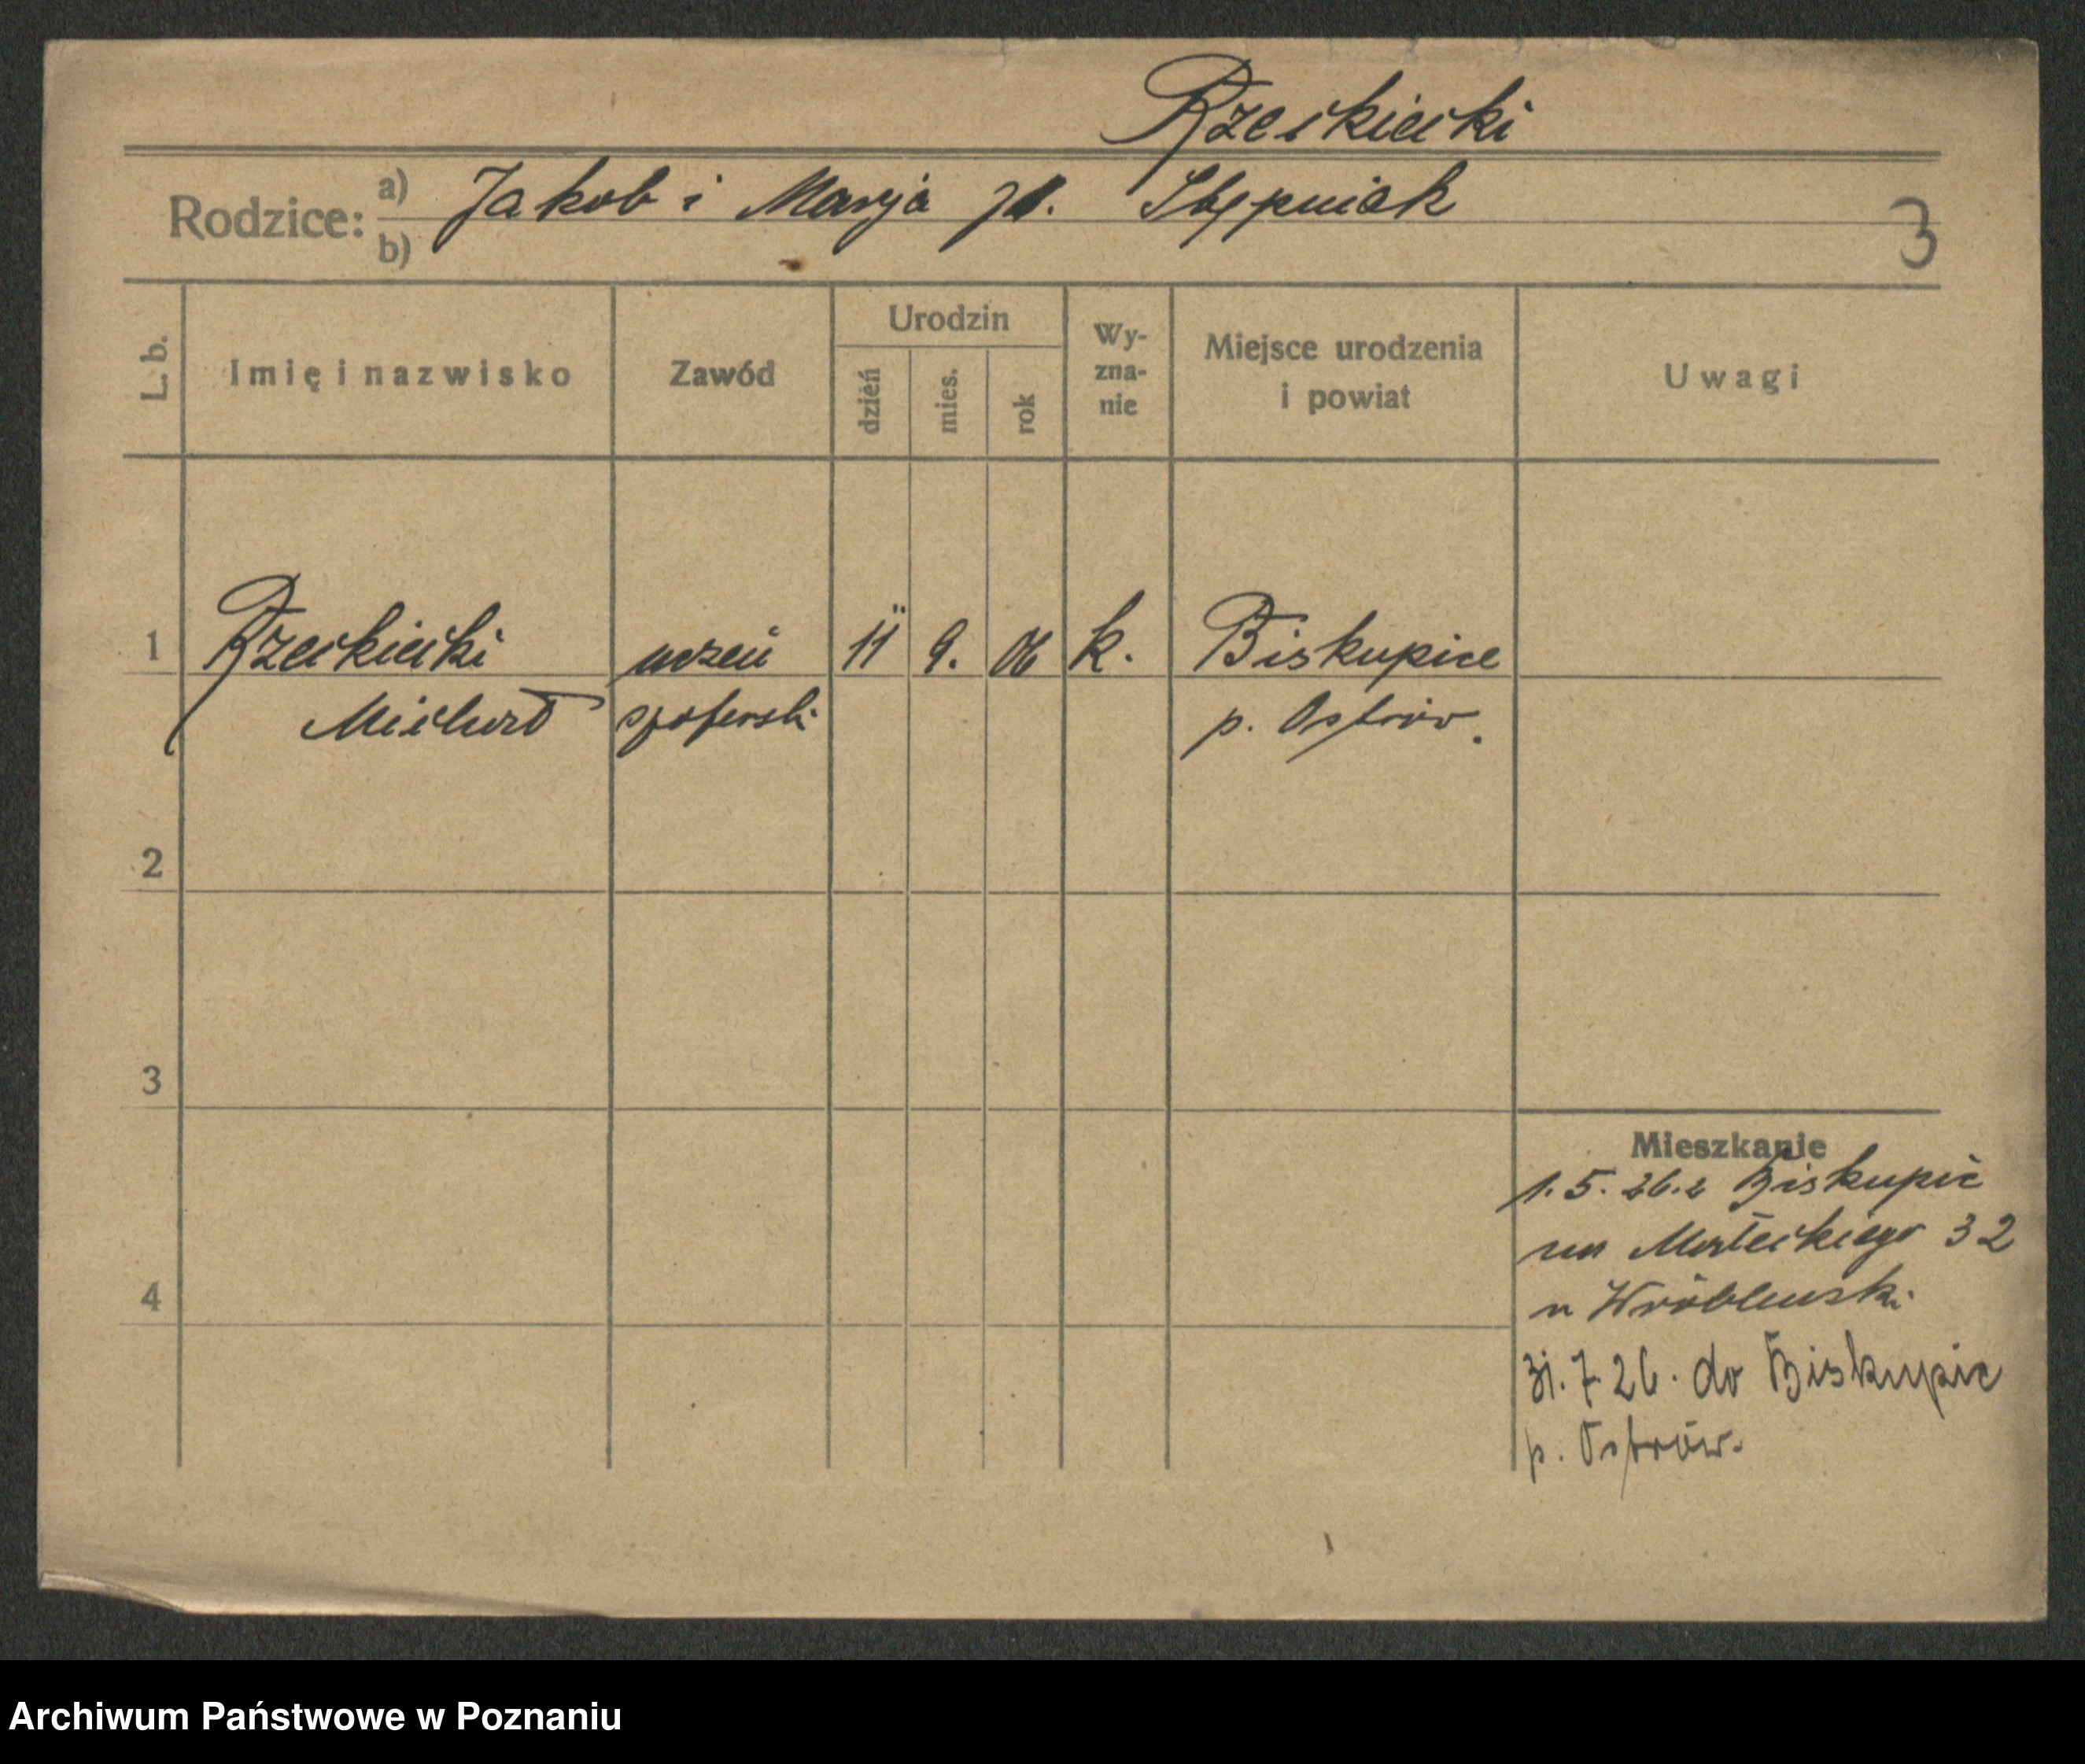 Rzeckiecki
Rodzice: a) b) Jakób i Marja zd. Stępniak
3
L. b.
Imię i nazwisko
Zawód
Urodzin
dzień
mies.
rok
Wy-
zna-
nie
Miejsce urodzenia
i powiat
Uwagi
1 Rzeckiecki uczeń 11 9. 06 k. Biskupice
Michał szoferski p. Ostrów.
2
3
4
Mieszkanie
1. 5. 26. z Biskupic
32
u Wróblewski
31. 7. 26. do Biskupic
p. Ostrów.
Archiwum Państwowe w Poznaniu